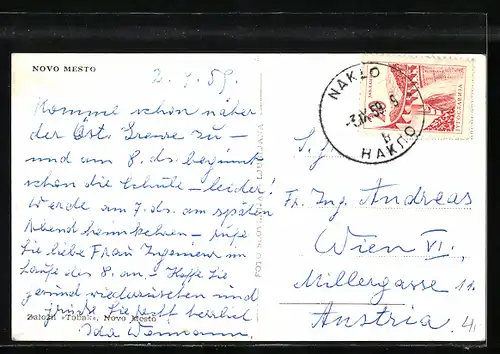 NOVO MESTO
2. 9. 59.
Komme schon näher
der Öst. Grenze zu —
und am 8. ds. beginnt
schon die Schule — leider!
Werde am 7. ds. am späten
Abend heimkehren — rufe
Sie liebe Frau Ingenieur im
Laufe des 8. an — Hoffe Sie
gesund wiederzusehen und
grüße Sie recht herzlich
Založil »Tobak«, Novo Mesto
Ida
FOTO SLOVENIJA LJUBLJANA
NAKLO
-3.IX.59 8
b
НАКЛО
S. g.
Fr. Ing. Andreas
Wien VI.,
Millergasse 11
Austria 4